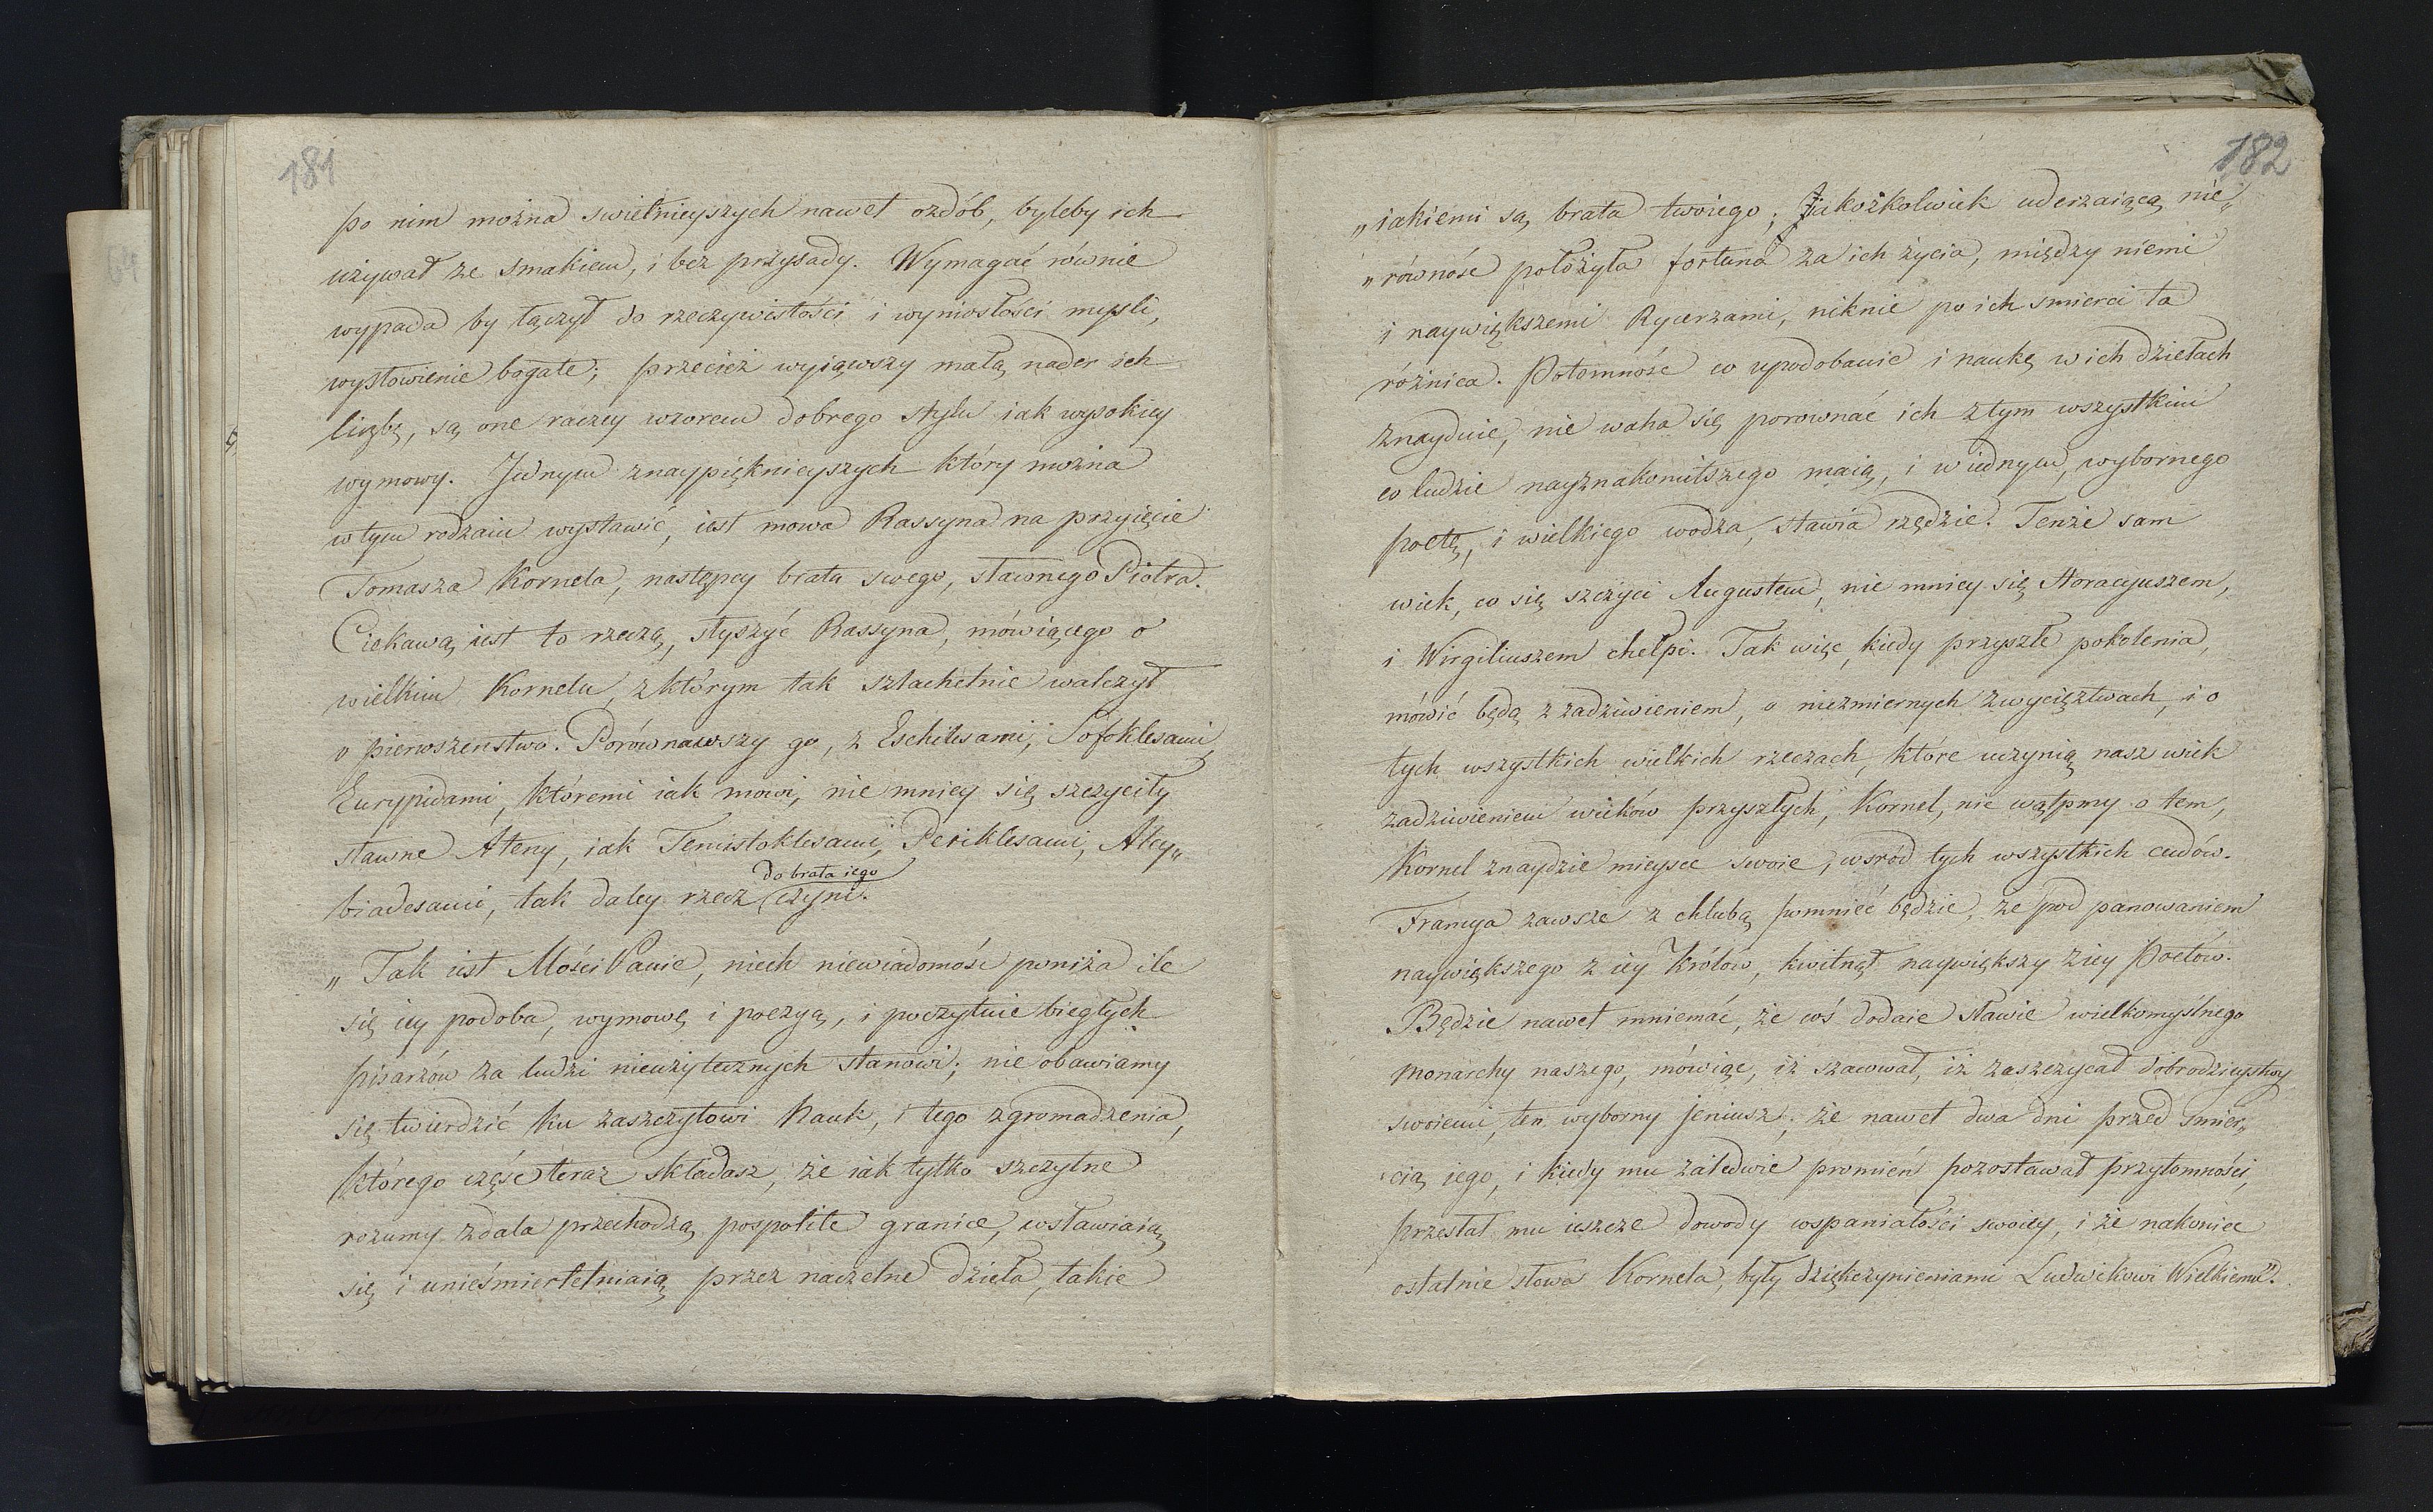 181
po nim można swietnieyszych nawet ozdób, byleby ich
używał ze smakiem, i bez przysady. Wymagać równie
wypada by łączył do rzeczywistości i wyniosłości mysli,
wysłowienie bogate; przecież wyiąwszy małą nader ich
liczbę, są one raczey wzorem dobrego stylu iak wysokiey
wymowy. Jednym znaypięknieyszych który można
w tym rodzaiu wystawić, iest mowa Rassyna na przyięcie
Tomasza Kornela, następcy brata swego, sławnego Piotra.
Ciekawą iest to rzeczą, słyszyć Rassyna, mówiącego o
wielkim Kornelu, z którym tak szlachetnie walczył
o pierwszenstwo. Porównawszy go, z Eschilesami, Sofoklesami,
Eurypidami, któremi iak mowi, nie mniey się szczyciły
sławne Ateny, iak Temistoklesami, Periklesami, Alcy„
biadesami, tak daley rzecz do brata iego czyni.
„Tak iest Mości Panie, niech niewiadomość poniża ile
się iey podoba, wymowę i poezyą, i poczytuie biegłych
pisarzów za ludzi nieużytecznych stanowi; nie obawiamy
się twierdzić ku zaszczytowi Nauk, i tego zgromadzenia,
którego część teraz składasz, że iak tylko szczytne
rozumy zdala przechodzą pospolite granice, wsławiaią
się i unieśmiertelniaią przez naczelne dzieła, takie
182
„iakiemi są brata twoiego; Jakożkolwiek uderzaiącą nie„
„równość położyła fortuna za ich życia, między niemi
i naywiększemi Rycerzami, niknie po ich smierci ta
różnica. Potomność co upodobanie i naukę w ich dziełach
znayduie, nie waha się porownać ich z tym wszystkim
co ludzie nayznakomitszego maią, i w iednym, wybornego
poetę, i wielkiego wodza, stawia rzędzie. Tenże sam
wiek, co się szczyci Augustem, nie mniey się Horacyuszem,
i Wirgiliuszem chełpi. Tak więc, kiedy przyszłe pokolenia,
mówić będą z zadziwieniem, o niezmiernych zwycięztwach, i o
tych wszystkich wielkich rzeczach, które uczynią nasz wiek
zadziwieniem wieków przyszłych, Kornel, nie wątpmy o tem,
Kornel znaydzie mieysce swoie, wsród tych wszystkich cudów.
Francya zawsze z chlubą pomnieć będzie, że pod panowaniem
naywiększego z iey Królów, kwitnął naywiększy z iey Poetów.
Będzie nawet mniemać, że coś dodaie sławie wielkomyślnego
monarchy naszego, mówiąc, iż szacował, iż zaszczycał dobrodzieystwy
swoiemi, ten wyborny jeniusz; że nawet dwa dni przed smier„
cią iego, i kiedy mu zaledwie promień pozostawał przytomności,
przesłał mu ieszcze dowody wspaniałości swoiey, i że nakoniec
ostatnie słowa Kornela, były dziękczynieniami Ludwikowi Wielkiemu".